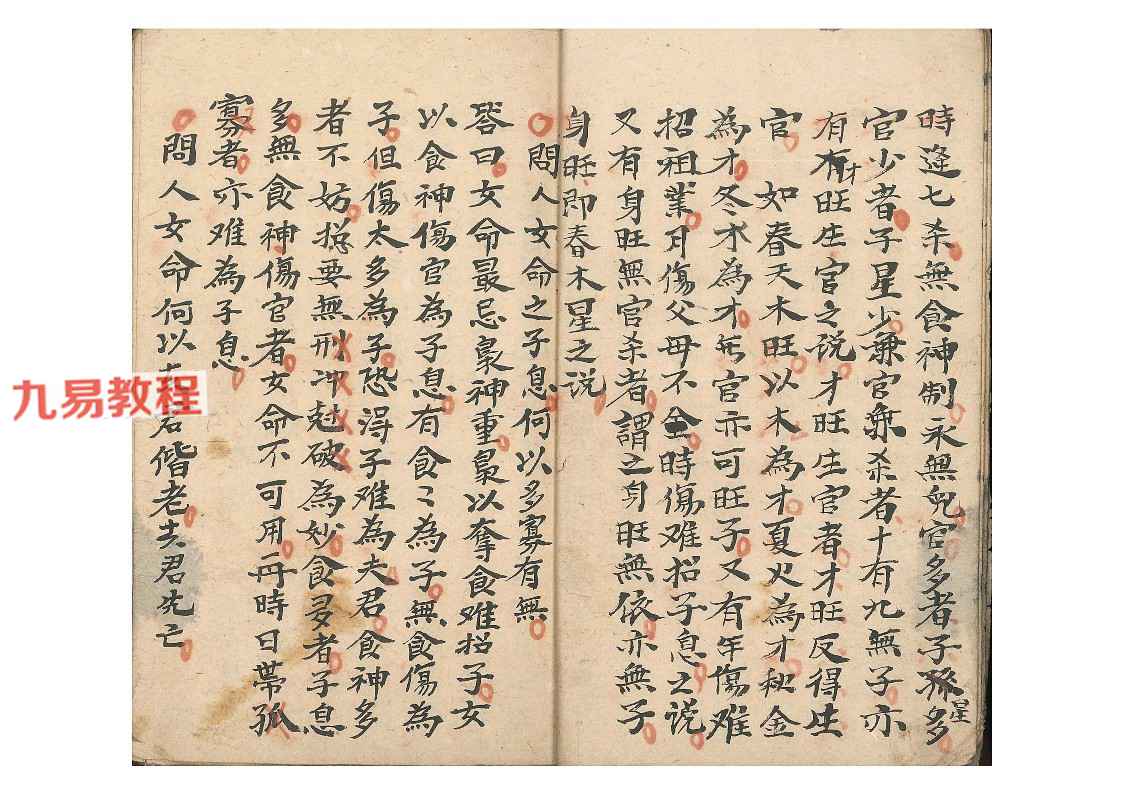 時逢七杀無食神制永無兒官多者子孫多
星
官少者子星少兼官兼杀者十有九無子亦
有有才旺生官之説才旺生官者才旺反得生
官 如春天木旺以木為才夏火為才秋金
為才冬水為才無官亦可旺子又有年傷难
招祖業月傷父母不全時傷难招子息之说
又有身旺無官杀者謂之身旺無依亦無子
身旺即春木星之说
問人女命之子息何以多寡有無
答曰女命最忌梟神重梟以奪食难招子女
以食神傷官為子息有食〻為子無食傷為
子但傷太多為子恐得子难為夫君食神多
者不妨揔要無刑冲尅破為妙食多者子息
多無食神傷官者女命不可用再時日帶孤
寡者亦难為子息
問人女命何以夫君偕老夫君先亡
九易教程